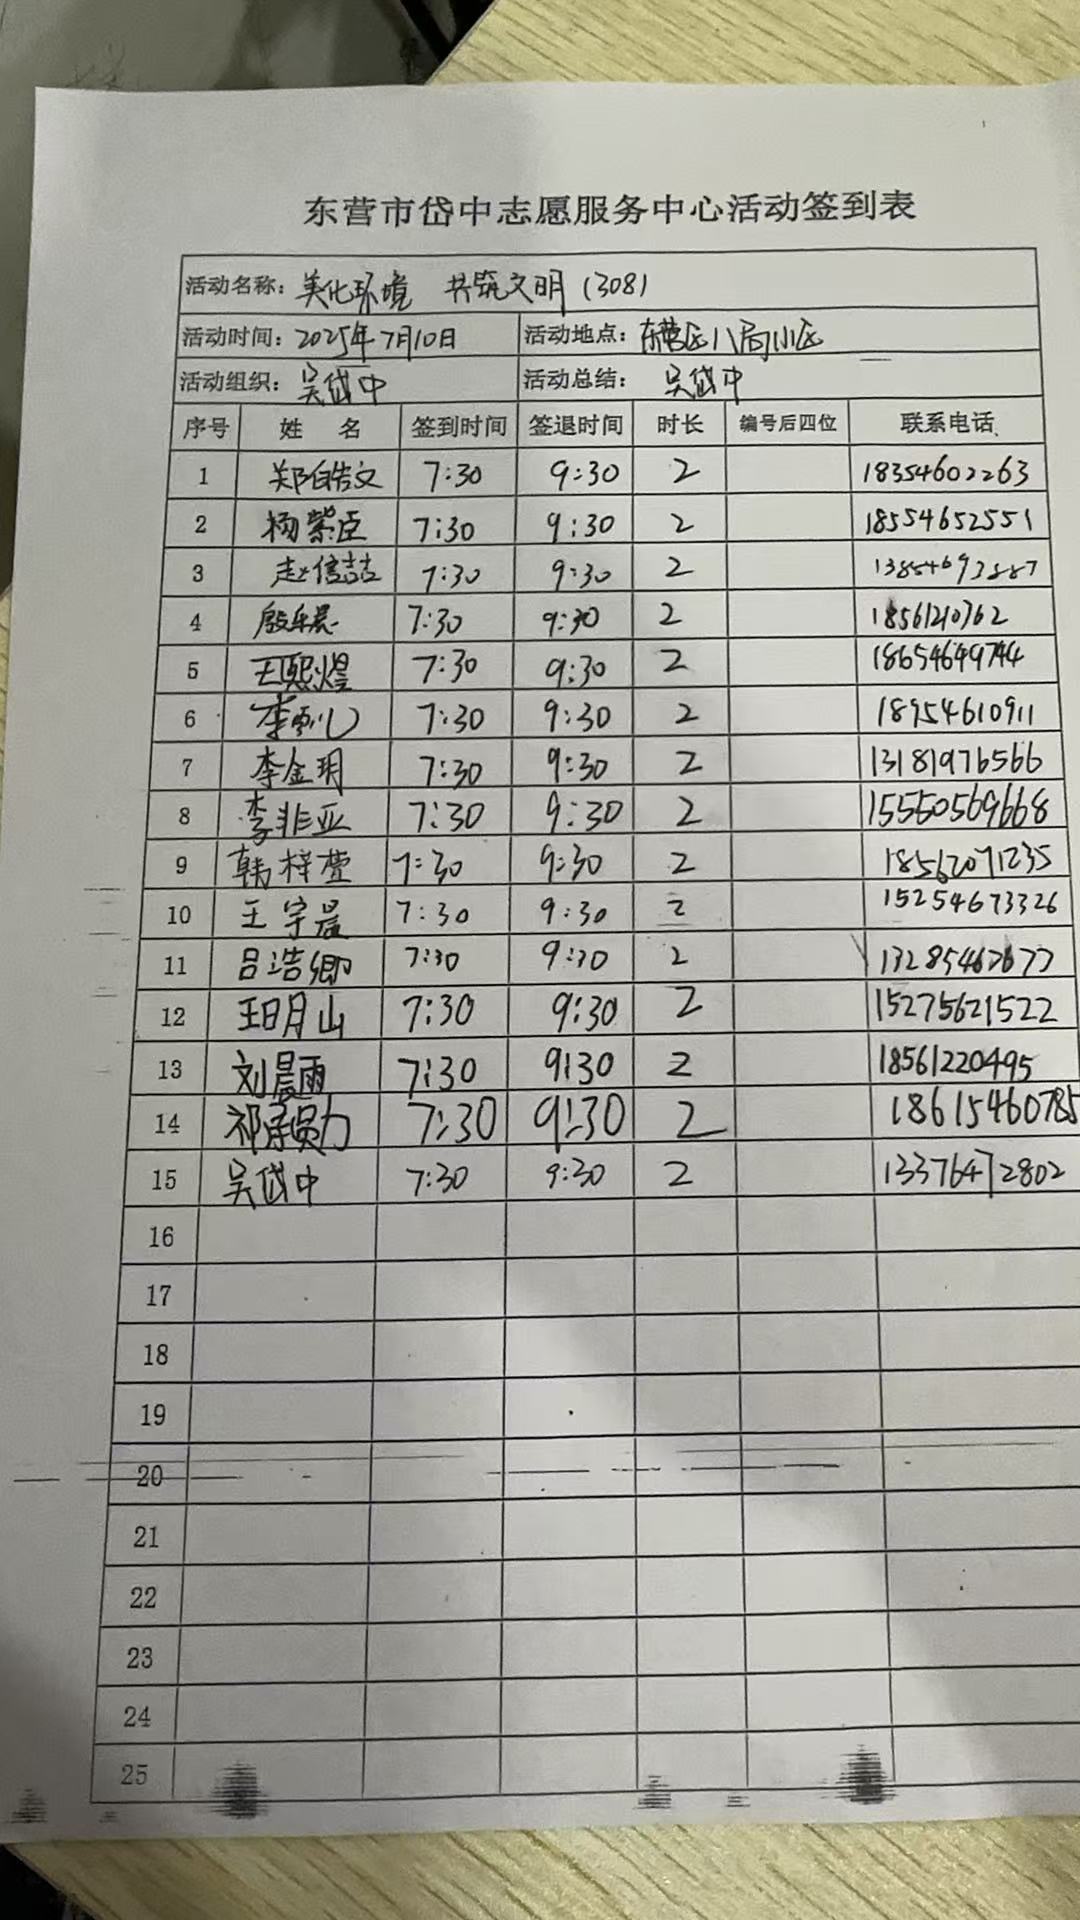 东营市岱中志愿服务中心活动签到表
活动名称：美化环境 共筑文明（308）
活动时间：2025年7月10日 活动地点：东营区八局小区
活动组织：吴岱中 活动总结：吴岱中
序号 姓 名 签到时间 签退时间 时长 编号后四位 联系电话
1 郑皓文 7:30 9:30 2 18354602263
2 杨紫臣 7:30 9:30 2 18554652551
3 赵信喆 7:30 9:30 2
4 7:30 9:30 2 18561210762
5 王熙煜 7:30 9:30 2 18654649744
6 7:30 9:30 2 18954610911
7 李金玥 7:30 9:30 2 13181976566
8 李非亚 7:30 9:30 2 15550569668
9 韩梓萱 7:30 9:30 2 18562071235
10 王宇晨 7:30 9:30 2 15254673326
11 吕浩卿 7:30 9:30 2
12 7:30 9:30 2 15275621522
13 刘晨雨 7:30 9:30 2 18561220495
14 7:30 9:30 2 18615460785
15 吴岱中 7:30 9:30 2 13376472802
16
17
18
19
20
21
22
23
24
25